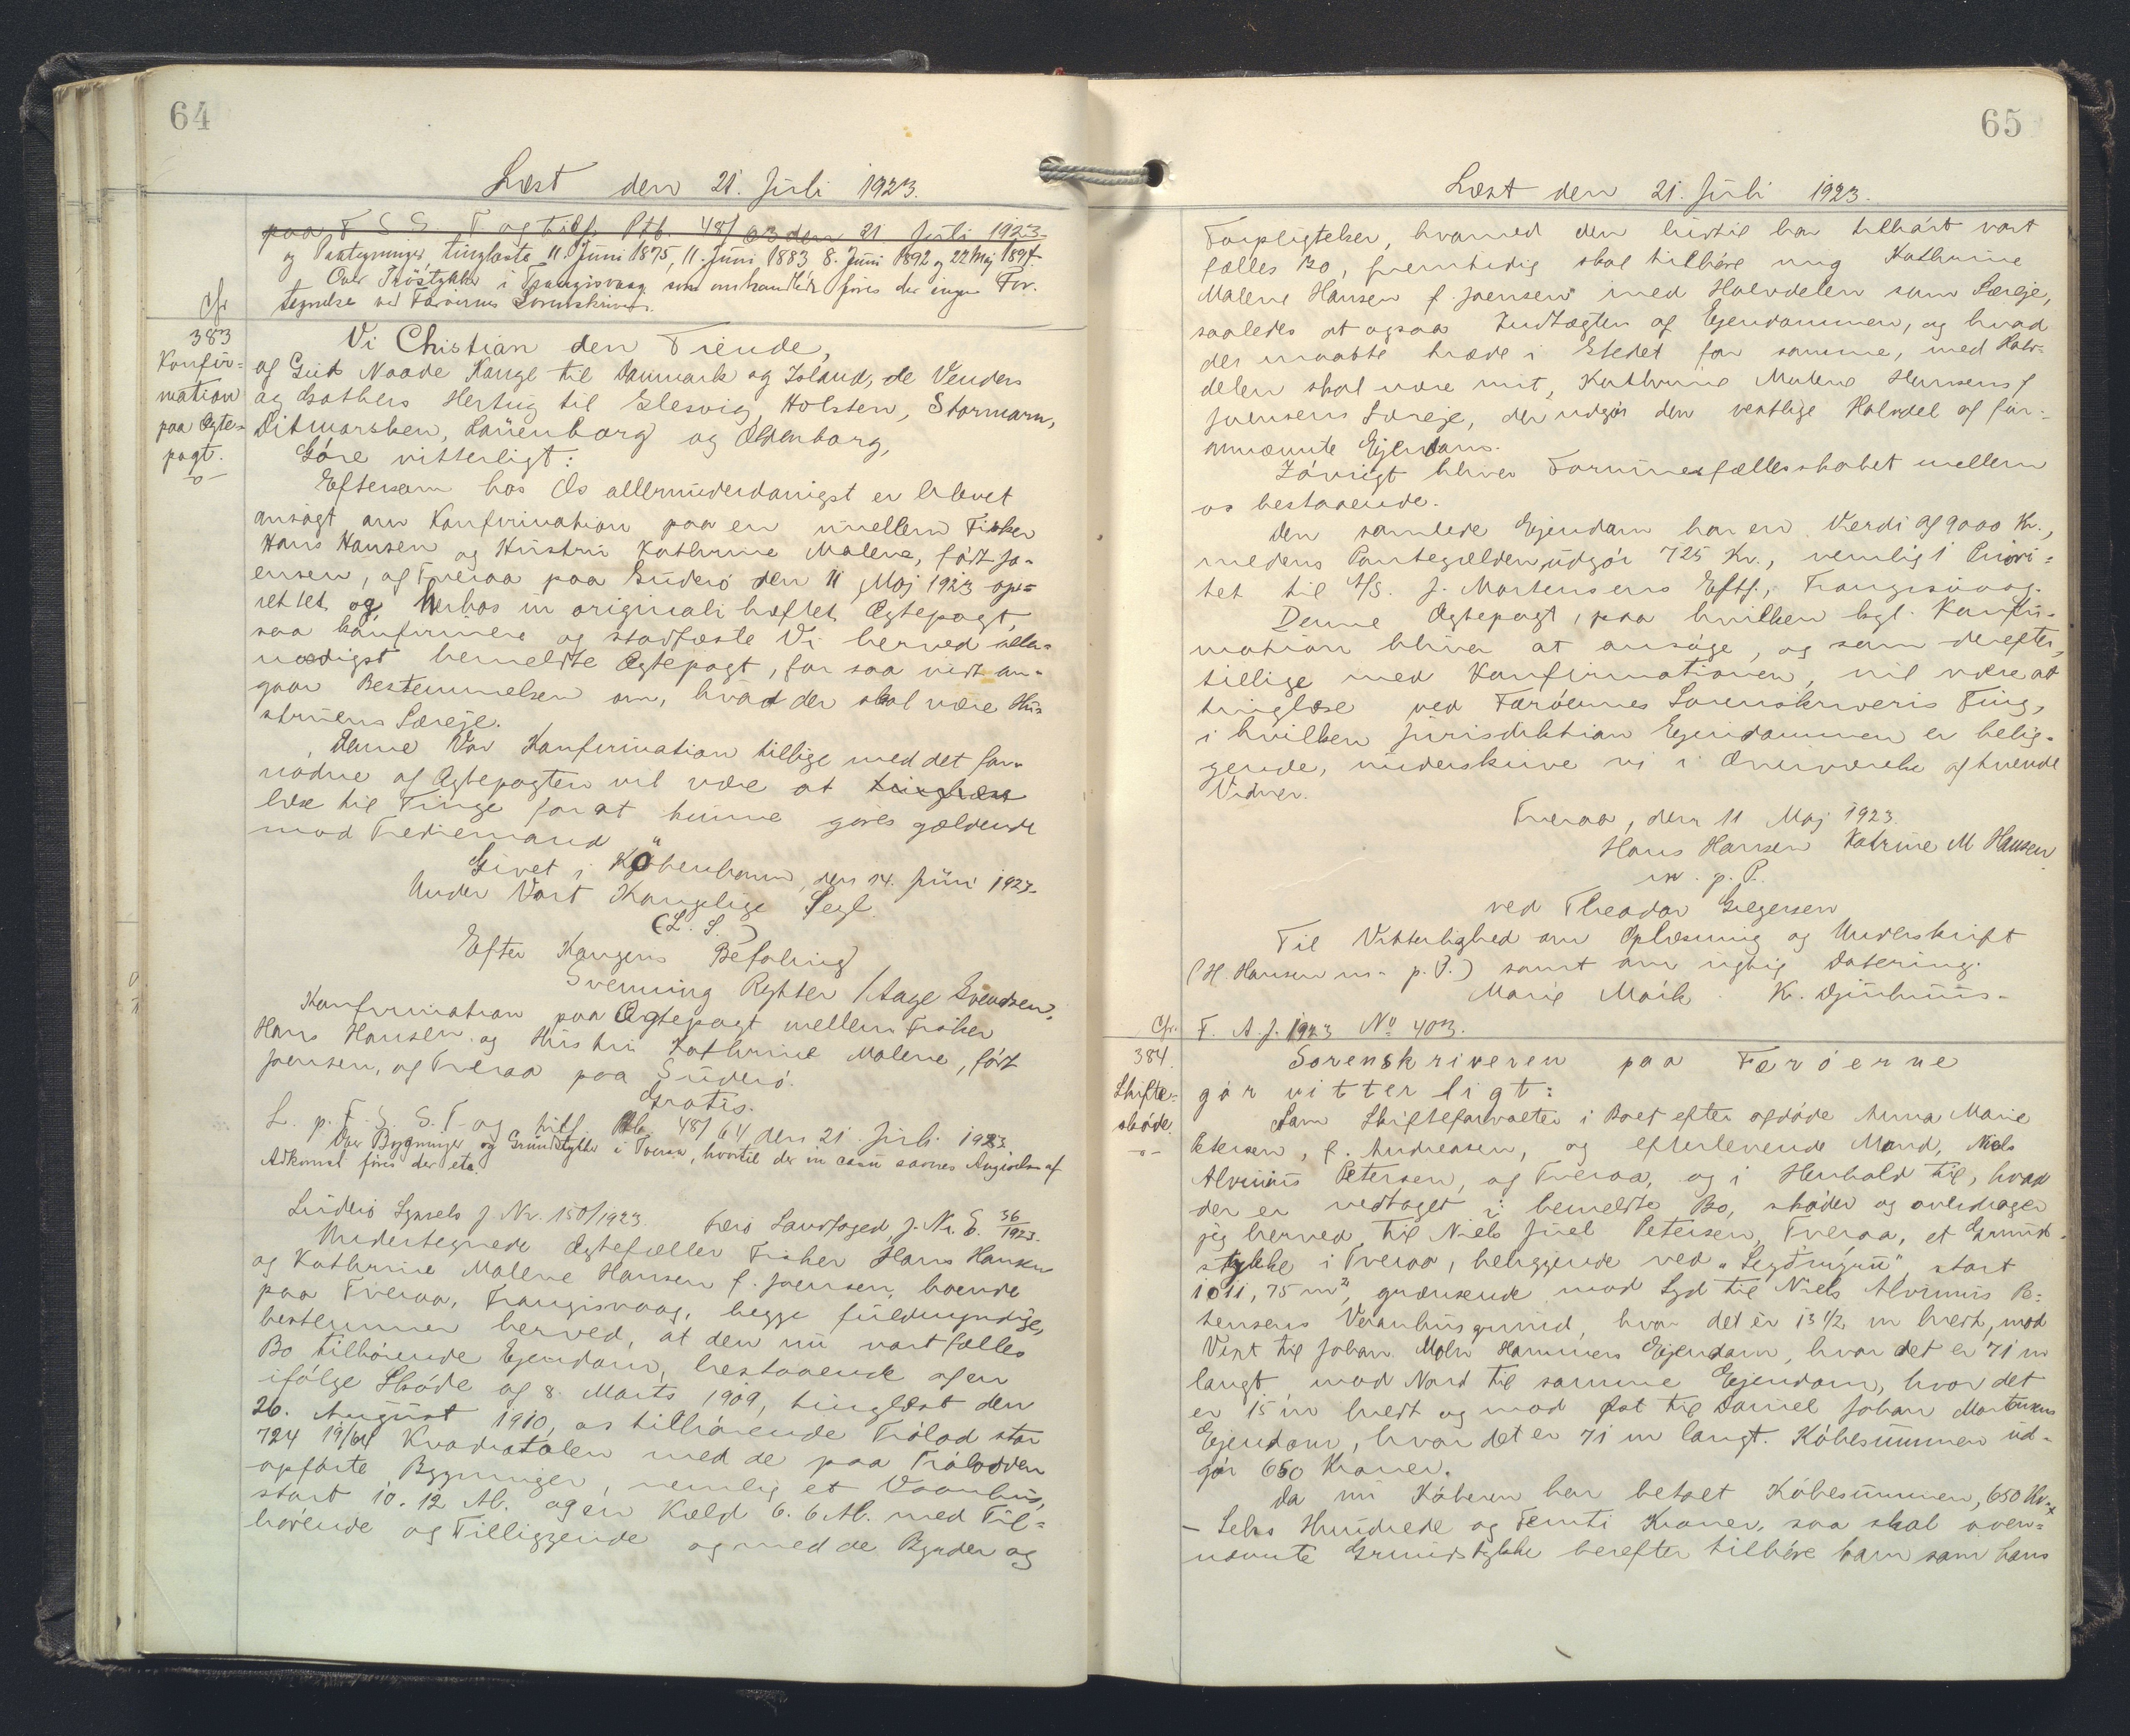 64
Læst den 21. Juli 1923.
paa F S S. T. og tilf. Ptb. 48/63 den 21 Juli 1923
og Paategninger, tinglæste 11. Juni 1875, 11. Juni 1883 8. Juni 1892 og 22 Maj 1894.
Over Trøstykke i Trangisvaag som omhandlede føres der ingen For-
tegnelse ved Færøernes Sorenskriveri.
Cfr
383
Konfir-
mation
paa Ægte-
pagt.
-o-
Vi Christian den Tiende,
af Guds Naade Konge til Danmark og Island, de Venders
og Gothers Hertug til Slesvig, Holsten, Stormarn,
Ditmarsken, Lauenborg og Oldenborg,
Gøre vitterligt:
Eftersom hos Os allerunderdanigst er blevet
ansøgt om Konfirmation paa en mellem Fisker
Hans Hansen og Hustru Kathrine Malene, født Jo-
ensen, af Tveraa paa Suderø den 11 Maj 1923 op-
rettet og herhos in originali hæftet Ægtepagt,
saa konfirmere og stadfæste Vi herved aller-
naadigst bemeldte Ægtepagt, for saa vidt an-
gaar Bestemmelsen om, hvad der skal være Hu-
struens Særeje.
Denne Vor Konfirmation tillige med det for-
nødne af Ægtepagten vil være at tinglæse
læse til Tinge for at kunne gøres gældende
mod Trediemand
Givet i København, den 14. Juni 1923-
Under Vort Kongelige Segl.
(L. S.)
Efter Kongens Befaling
Svenning Rytter / Aage Svendsen.
Konfirmation paa Ægtepagt mellem Fisker
Hans Hansen og Hustru Kathrine Malene, født
Joensen, af Tveraa paa Suderø.
Gratis.
L. p. F. S. S. T. og tilf. Ptb. 48/64 den 21. Juli 1923
Over Bygninger og Grundstykke i Tveraa, hvortil der in casu savnes Angivelse af
Adkomst føres der etc.
Suderø Syssels J. Nr. 150/1923. Færø Landfoged, J. Nr. E. 36/1923.
Undertegnede Ægtefæller Fisker Hans Hansen
og Kathrine Malene Hansen f. Joensen, boende
paa Tveraa, Trangisvaag, begge fuldmyndige,
bestemmer herved, at den nu vort fælles
Bo tilhørende Ejendom, bestaaende af en
ifølge Skøde af 8. Marts 1909, tinglæst den
26. August 1910, os tilhørende Trølod stor
724 19/64 Kvadratalen med de paa Trølodden
opførte Bygninger, nemlig et Vaanhus,
stort 10. 12 Al. og en Kæld 6. 6 Al. med Til-
hørende og Tilliggende og med de Byrder og
65
Læst den 21. Juli 1923.
Forpligtelser, hvormed den hidtil har tilhørt vort
fælles Bo, fremtidig skal tilhøre mig Kathrine
Malene Hansen f. Joensen med Halvdelen som Særeje,
saaledes at ogsaa Indtægten af Ejendommen, og hvad
der maatte træde i Stedet for samme, med Halv-
delen skal være mit, Kathrine Malene Hansens f
Joensens Særeje, der udgør den vestlige Halvdel af for-
annævnte Ejendom.
Iøvrigt bliver Formuesfællesskabet mellem
os bestaaende.
Den samlede Ejendom har en Værdi af 9000 Kr.,
medens Pantegælden udgør 725 Kr., nemlig 1 Priori-
tet til A/S. J. Mortensens Eftf., Trangisvaag.
Denne Ægtepagt, paa hvilken kgl. Konfir-
mation bliver at ansøge, og som derefter,
tillige med Konfirmationen, vil være at
tinglæse ved Færøernes Sorenskriveris Ting,
i hvilken Jurisdiktion Ejendommen er belig-
gende, underskrive vi i Overværelse af tvende
Vidner.
Tveraa, den 11 Maj 1923.
Hans Hansen Katrine M Hansen
m. p. P.
ved Theodor Gregersen
Til Vitterlighed om Oplæsning og Underskrift
(H. Hansen m. p. P.) samt om rigtig Datering.
Marie Mørk K. Djurhuus-
Cfr. F. A. J. 1923 No 403.
384.
Skifte-
skøde.
-o-
Sorenskriveren paa Færøerne
gør vitterligt:
Som Skifteforvalter i Boet efter afdøde Anna Marie
Petersen, f. Andreasen, og efterlevende Mand, Niels
Alvinus Petersen, af Tveraa, og i Henhold til, hvad
der er vedtaget i bemeldte Bo, skøder og overdrager
jeg herved til Niels Juel Petersen, Tveraa, et Grund-
stykke i Tveraa, beliggende ved stort
1011,75 m², grænsende mod Syd til Niels Alvinus Pe-
tersens Vaanhusgrund, hvor det er 13½ m bredt, mod
Vest til Johan Mohr Hammers Ejendom, hvor det er 71 m
langt, mod Nord til samme Ejendom, hvor det
er 15 m bredt og mod Øst til Daniel Johan Mortensens
Ejendom, hvor det er 71 m langt. Købesummen ud-
gør 650 Kroner.
Da nu Køberen har betalt Købesummen, 650 Kr.
- Seks Hundrede og Femti Kroner, saa skal oven-
nævnte Grundstykke herefter tilhøre ham som hans